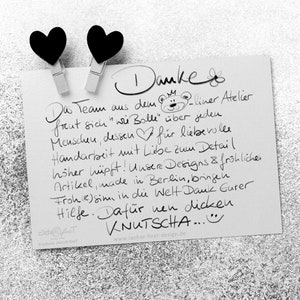 Danke
Das Team aus dem -liner Atelier
freut sich "wie Bolle" über jeden
Menschen, dessen für liebevolle
Handarbeit mit Liebe zum Detail
höher hüpft! Unsere Designs & fröhlichen
Artikel, made in Berlin, bringen
Froh(sinn in die Welt Dank Eurer
Hilfe. Dafür nen dicken
KNUTSCHA...